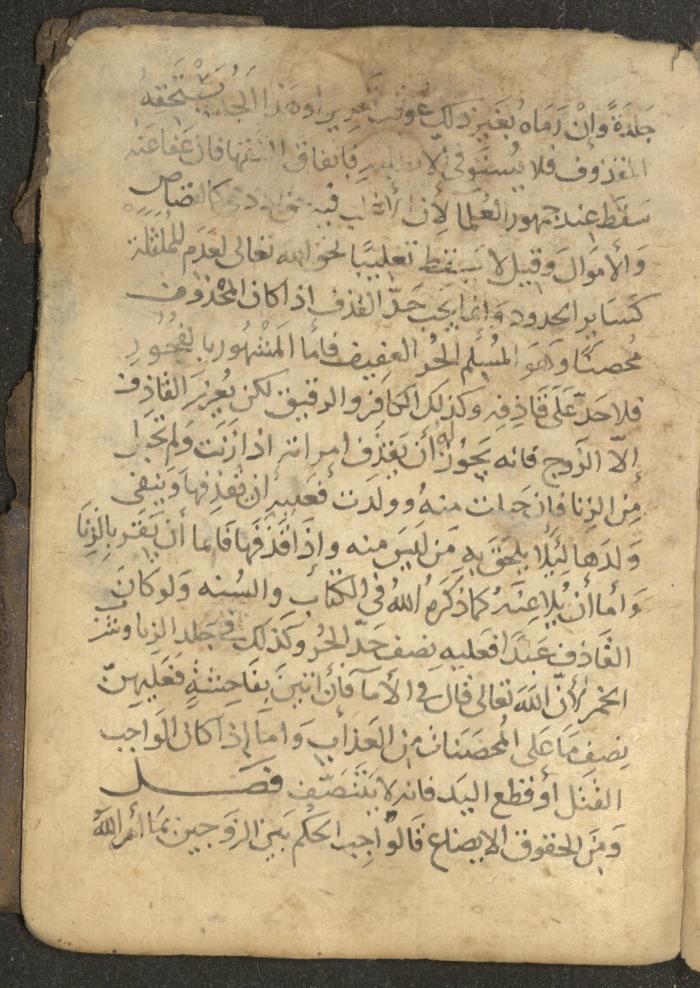 جلدة وان رماه بغير ذلك عوقب تعزيرا وهذا الحد يستحقه
المقذوف فلا يستوفى الا بطلبه باتفاق الفقها فان عفا عنه
سقط عند جمهور العلما لان الاغلب فيه حق الادمى كالقصاص
والأموال وقيل لا يسقط تغليبا لحق الله تعالى لعدم المماثلة
كساير الحدود وانما يجب حدّ القذف اذا كان المقذوف
محصنًا وهو المُسلم الحُر العفيف فأما المشهور بالفجور
فلا حدّ على قاذفه وكذلك الكافر والرقيق لكن يُعزر القاذف
إلّا الزوج فانه يجوز له أن يقذف امراته اذا زنت ولم تحبل
من الزنا فان حبلت منه وولدت فعليه أن يقذفها وينفى
ولدها ليلا يلحق به من ليس منه وإذا قذفها فاما أن تقر بالزنا
وأما أن يلاعنه كما ذكره الله في الكتاب والسنه ولو كان
القاذف عبدًا فعليه نصف حدّ الحُر وكذلك في جلد الزنا وشرب
الخمر لأن الله تعالى قال في الأما فأن اتين بفاحشةٍ فعليهنّ
نصف ما على المحصنات من العذاب وأما إذا كان الواجب
القتل أو قطع اليد فانه لا يتنصّف فصل
ومن الحقوق الابضاع فالواجب الحكم بين الزوجين بما أمر الله